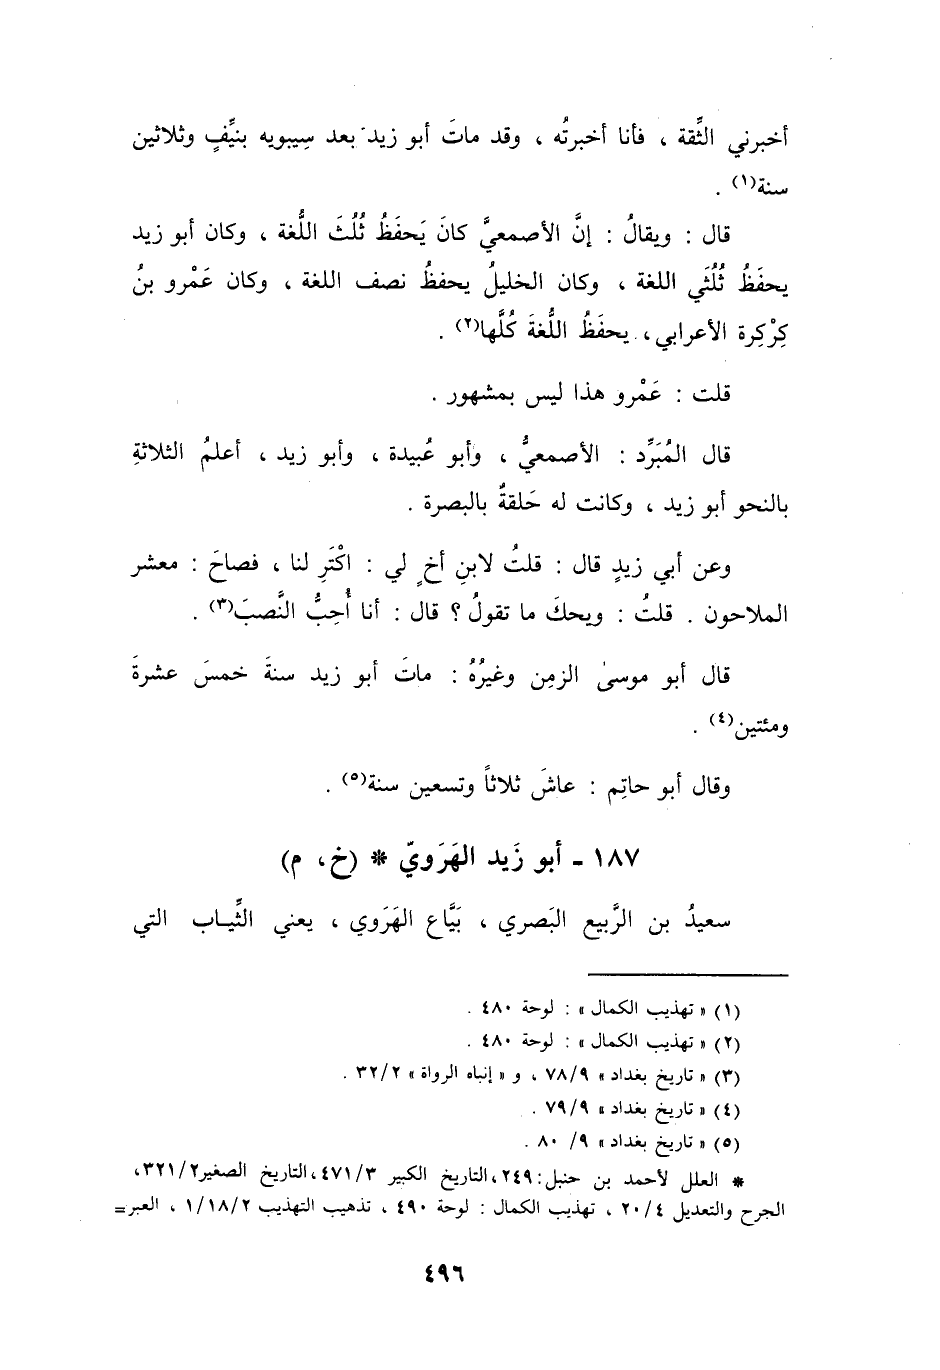 أخبرني الثِّقة ، فأنا أخبرتُه ، وقد ماتَ أبو زيد بعد سِيبويه بنيِّفٍ وثلاثين
سنة(١) .
قال : ويقالُ : إنَّ الأصمعيَّ كانَ يَحفَظُ ثُلُثَ اللُّغة ، وكان أبو زيد
يحفَظُ ثُلُثَي اللغة ، وكان الخليلُ يحفظُ نصف اللغة ، وكان عَمْرو بنُ
كِرْكِرة الأعرابي ، يحفَظُ اللُّغةَ كُلَّها(٢) .
قلت : عَمْرو هذا ليس بمشهور .
قال المُبَرِّد : الأصمعيُّ ، وأبو عُبيدة ، وأبو زيد ، أعلمُ الثلاثةِ
بالنحو أبو زيد ، وكانت له حَلقةٌ بالبصرة .
وعن أبي زيدٍ قال : قلتُ لابنِ أخٍ لي : اكْتَرِ لنا ، فصاحَ : معشر
الملاحون . قلتُ : ويحكَ ما تقولُ ؟ قال : أنا أُحِبُّ النَّصبَ(٣) .
قال أبو موسىٰ الزمِن وغيرُهُ : ماتَ أبو زيد سنةَ خمسَ عشرةَ
ومئتين(٤) .
وقال أبو حاتِم : عاشَ ثلاثاً وتسعين سنة(٥) .
١٨٧ - أبو زَيد الهَرَويّ * (خ، م)
سعيدُ بن الرَّبيع البَصري ، بَيَّاع الهَرَوي ، يعني الثِّياب التي
(١) « تهذيب الكمال » : لوحة ٤٨٠ .
(٢) « تهذيب الكمال » : لوحة ٤٨٠ .
(٣) « تاريخ بغداد » ٧٨/٩ ، و « إنباه الرواة » ٣٢/٢ .
(٤) « تاريخ بغداد » ٧٩/٩ .
(٥) « تاريخ بغداد » ٩/ ٨٠ .
* العلل لأحمد بن حنبل : ٢٤٩ ، التاريخ الكبير ٤٧١/٣ ، التاريخ الصغير ٣٢١/٢ ،
الجرح والتعديل ٢٠/٤ ، تهذيب الكمال : لوحة ٤٩٠ ، تذهيب التهذيب ١/١٨/٢ ، العبر =
٤٩٦